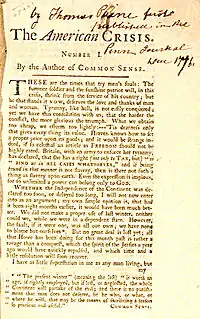 by Thomas Paine first
published in the
The American CRISIS.
Penn. Journal
NUMBER I.
Dec 1776
By the Author of COMMON SENSE.
THESE are the times that try men's souls: The
summer soldier and the sunshine patriot will, in this
crisis, shrink from the service of his country; but
he that stands it NOW, deserves the love and thanks of man
and woman. Tyranny, like hell, is not easily conquered;
yet we have this consolation with us, that the harder the
conflict, the more glorious the triumph. What we obtain
too cheap, we esteem too lightly:
that gives every thing its value. Heaven knows how to set
a proper price upon its goods; and it would be strange in-
deed, if so celestial an article as FREEDOM should not be
highly rated. Britain, with an army to enforce her tyranny,
has declared, that she has a right (not only to TAX, but) "to
"BIND us in ALL CASES WHATSOEVER," and if being
bound in that manner is not slavery, then is there not such a
thing as slavery upon earth. Even the expression is impious,
for so unlimited a power can belong only to GOD.
WHETHER the Independence of the Continent was de-
clared too soon, or delayed too long, I will not now enter
into as an argument; my own simple opinion is, that had
it been eight months earlier, it would have been much bet-
ter. We did not make a proper use of last winter, neither
could we, while we were in a dependent state. However,
the fault, if it were one, was all our own; we have none
to blame but ourselves. But no great deal is lost yet; all
that Howe has been doing for this month past is rather a
ravage than a conquest, which the spirit of the Jersies a year
ago would have quickly repulsed, and which time and a
little resolution will soon recover.
I have as little superstition in me as any man living, but
my
"The present winter" (meaning the last) "is worth an
age, if rightly employed, but if lost, or neglected, the whole
Continent will partake of the evil; and there is no punish-
ment that man does not deserve, be he who, or what, or
where he will, that may be the means of sacrificing a season
so precious and useful."
COMMON SENSE.